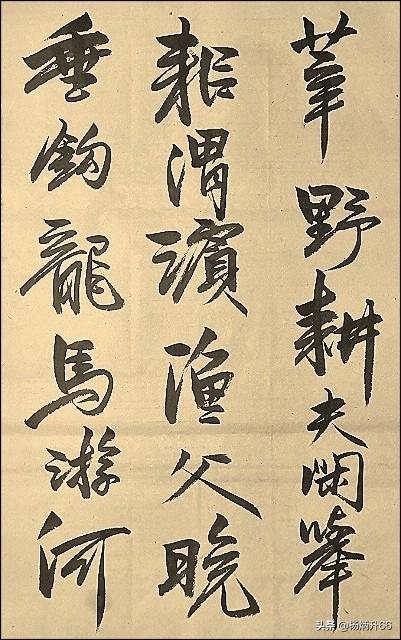 莘野耕夫閑舉
耜渭濱漁父晚
垂鈎龍馬游河
头条 @杨炳升66